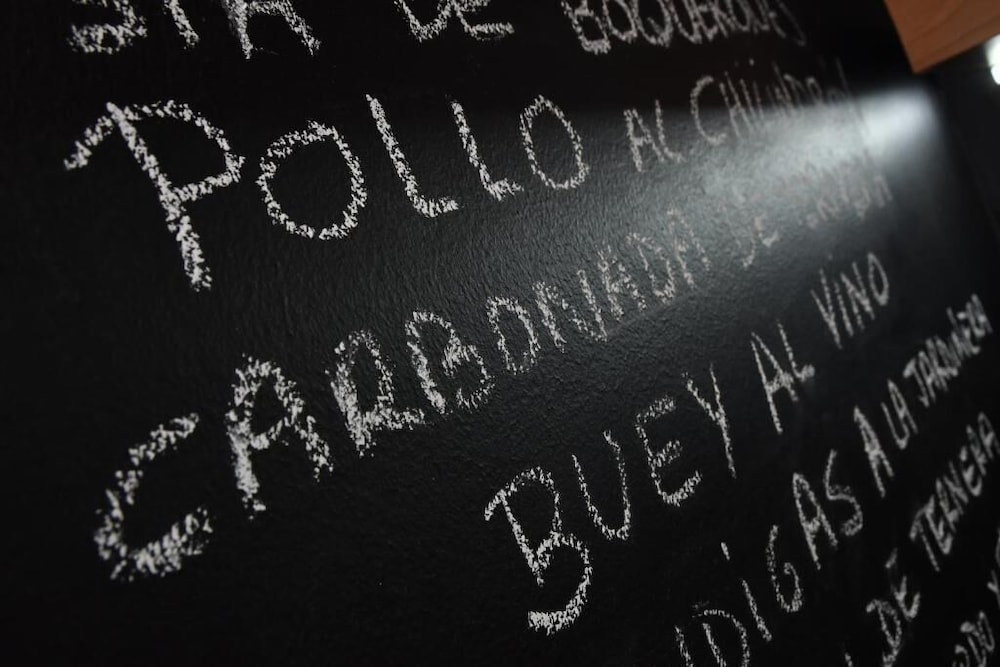 STA DE BOQUERONES
POLLO AL CHILINDRÓN
CARBONNADA DE
BUEY AL VINO
NDIGAS A LA JARDINERA
DE TERNERA